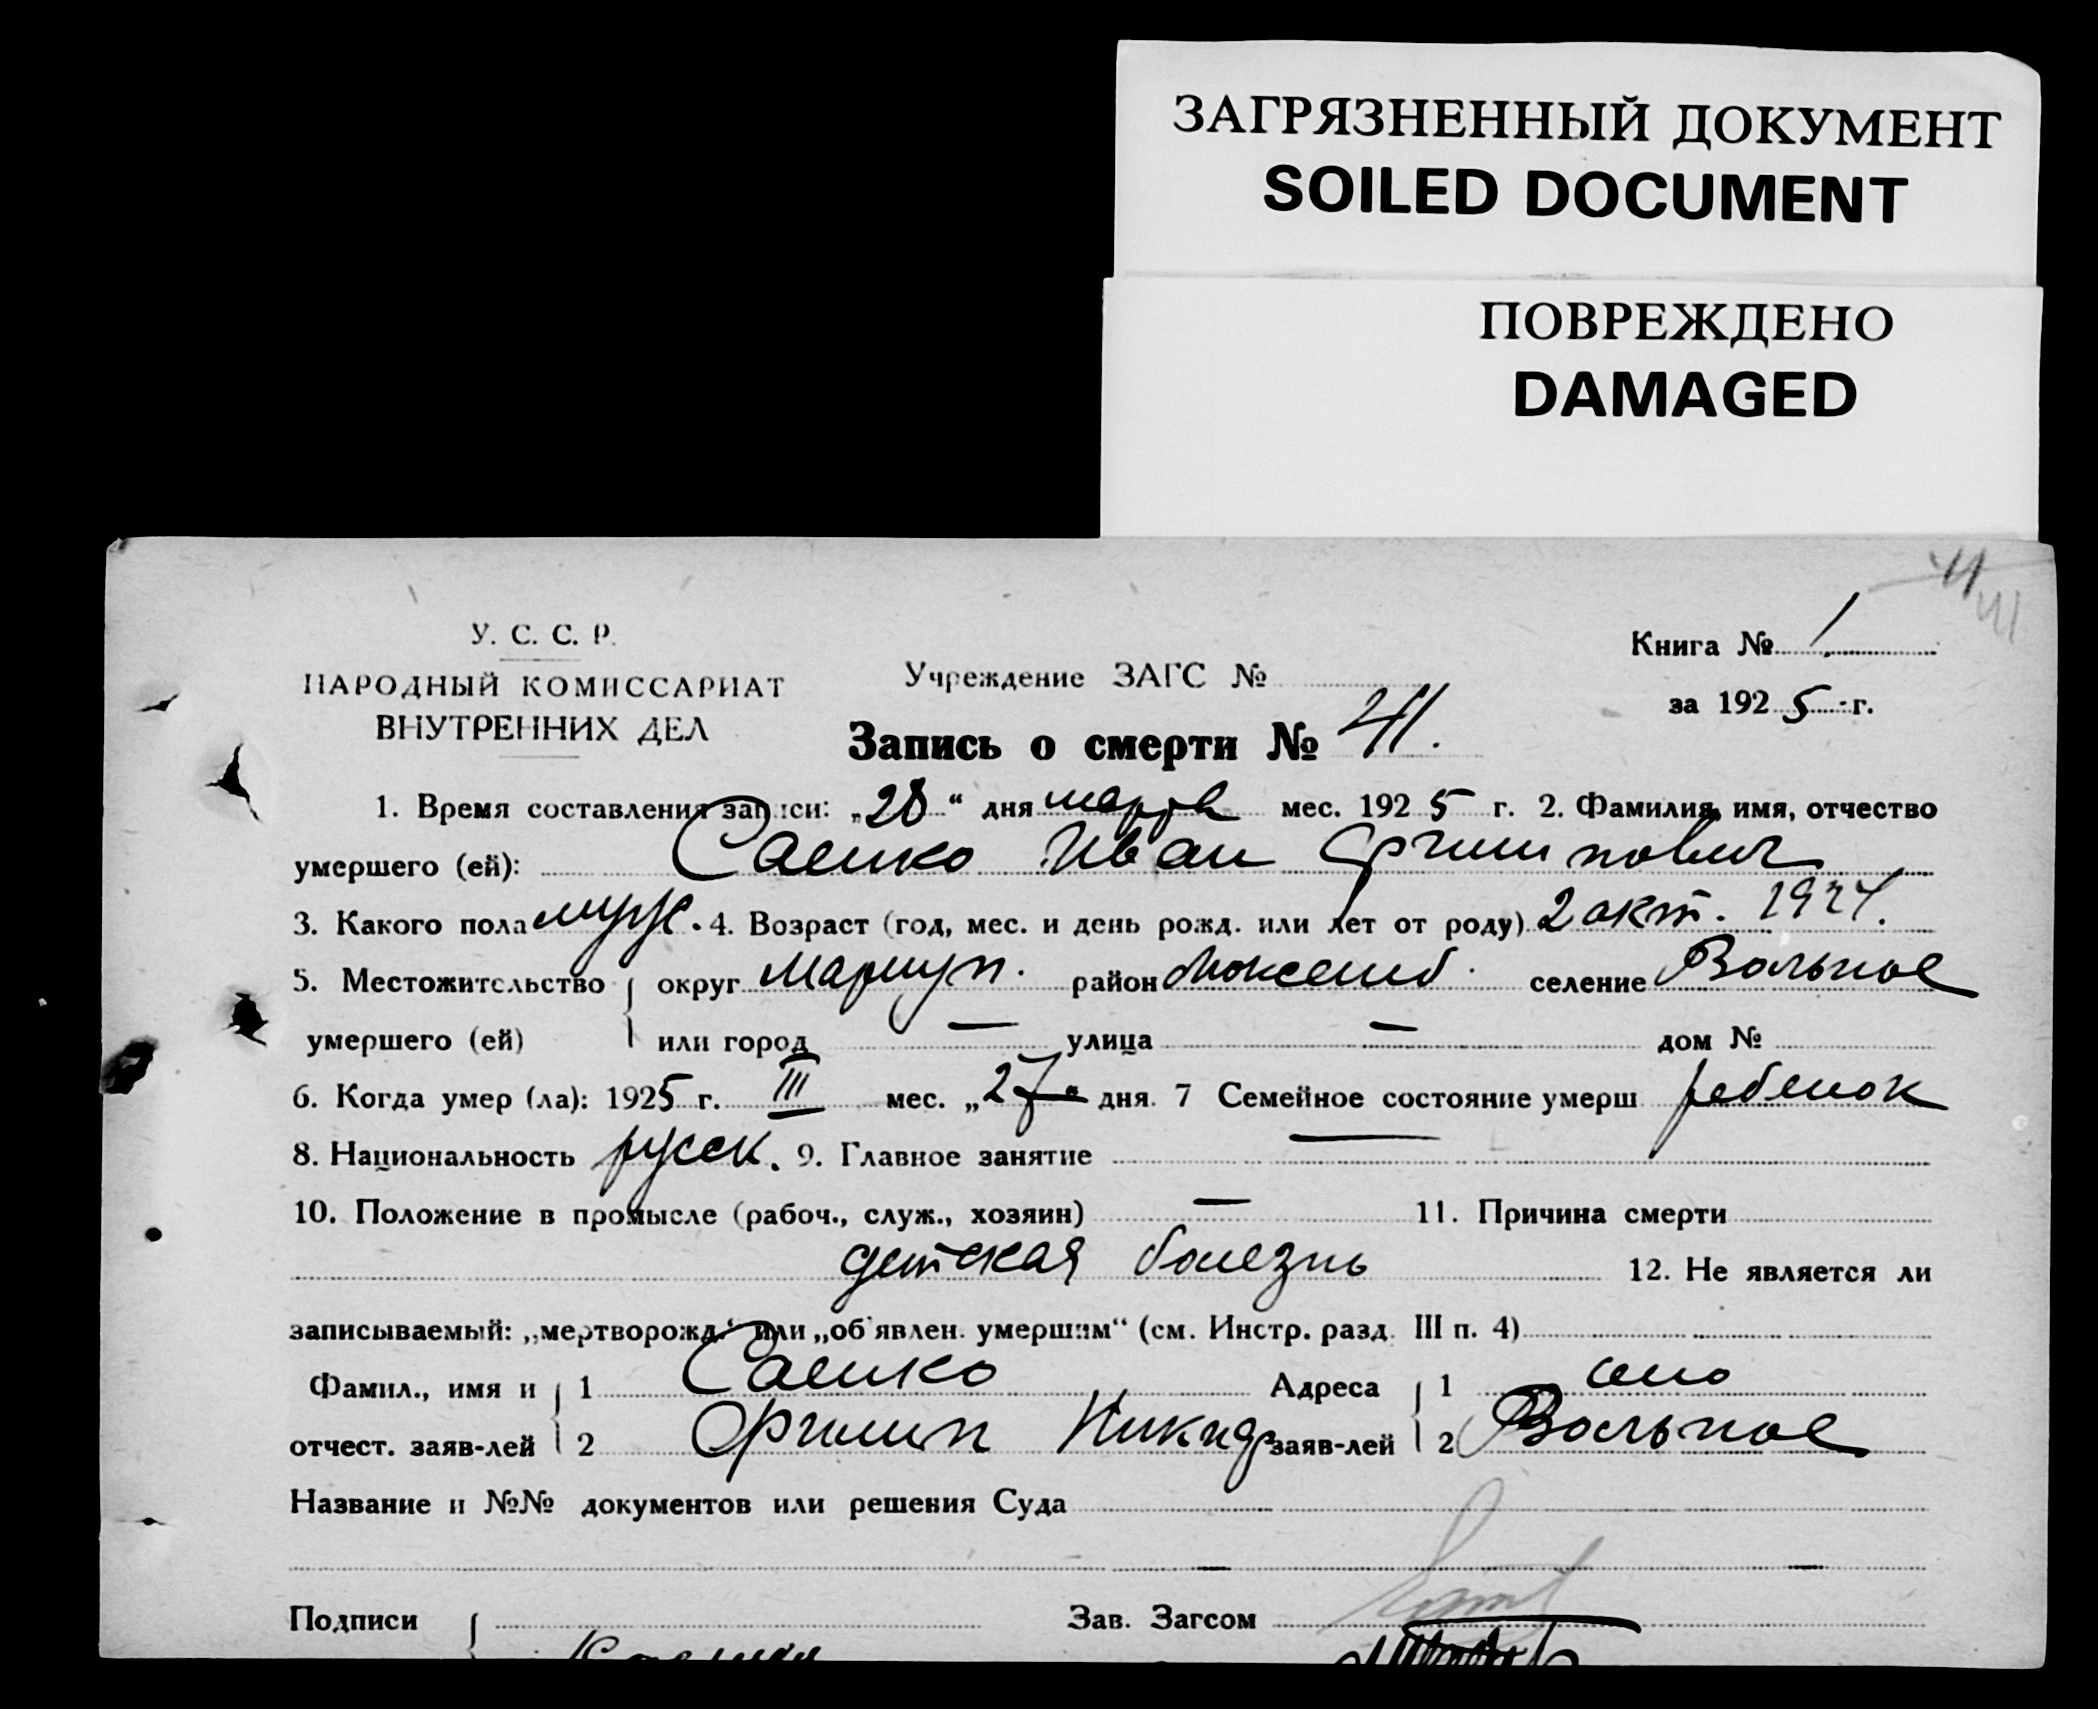 ЗАГРЯЗНЕННЫЙ ДОКУМЕНТ
SOILED DOCUMENT
ПОВРЕЖДЕНО
DAMAGED
41
41
У. С. С. Р.
НАРОДНЫЙ КОМИССАРИАТ
ВНУТРЕННИХ ДЕЛ
Учреждение ЗАГС №
Книга № 1.
за 1925 г.
Запись о смерти № 41.
1. Время составления записи: „28“ дня марта мес. 1925 г. 2. Фамилия, имя, отчество
умершего (ей): Сашко Иван
3. Какого пола муж. 4. Возраст (год, мес. и день рожд. или лет от роду) 2 окт. 1924.
5. Местожительство округ Мариуп. район селение Вольное
умершего (ей) или город — улица — дом №
6. Когда умер (ла): 1925 г. III мес. „27“ дня. 7 Семейное состояние умерш ребенок
8. Национальность русск. 9. Главное занятие —
10. Положение в промысле (рабоч., служ., хозяин) — 11. Причина смерти
детская болезнь 12. Не является ли
записываемый: „мертворожд.“ или „об'явлен. умершим“ (см. Инстр. разд. III п. 4)
Фамил., имя и 1 Сашко Адреса 1 село
отчест. заяв-лей 2 заяв-лей 2 Вольное
Название и №№ документов или решения Суда
— —
Подписи Зав. Загсом